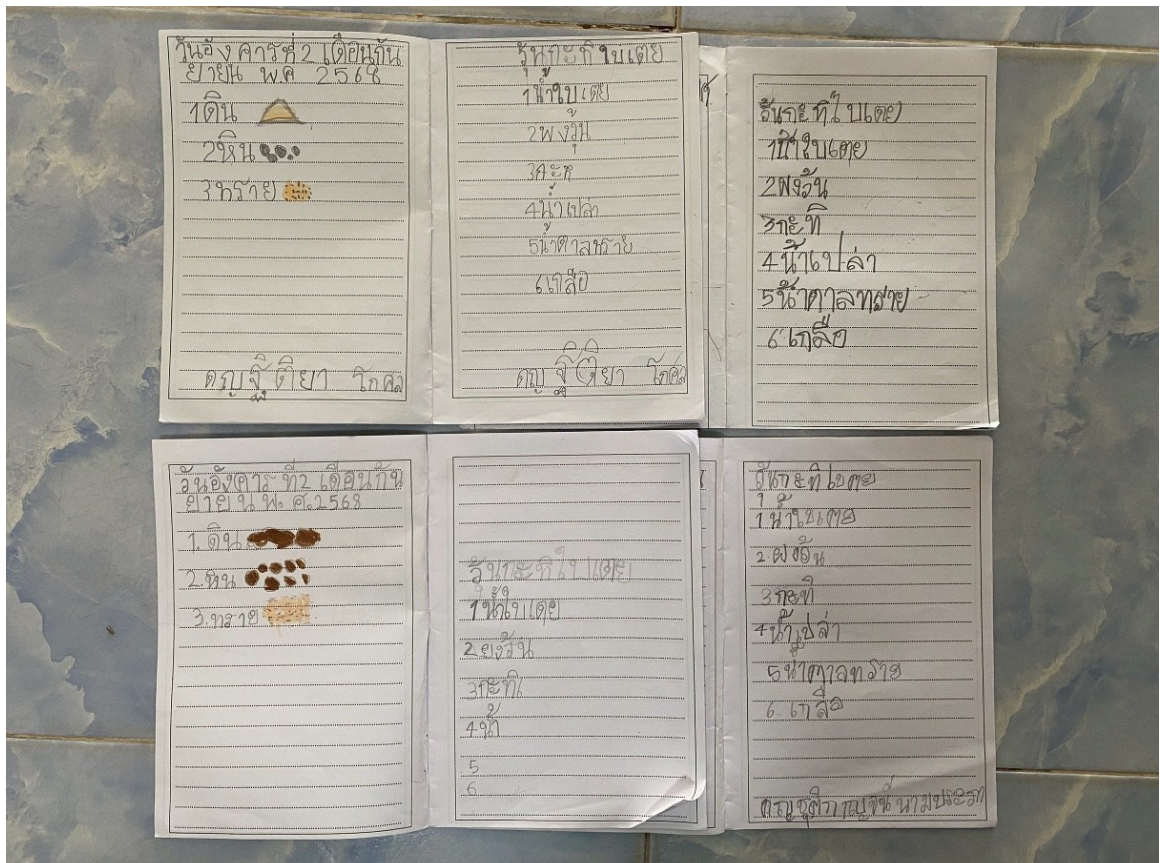 วันอังคารที่2 เดือนกัน
ยายน พ.ค 2568
1ดิน
2หิน
3ทราย
ดญฐิติยา โกศล
รุ้นกะทิใบเตย
1น้ำใบเตย
2ผงวุ้น
3กะท
4น้ำเปล่า
5น้ำตาลทราย
6เกลือ
ดญฐิติยา โกศล
วุ้นกะทิใบเตย
1น้ำใบเตย
2ผงวุ้น
3กะทิ
4น้ำเปล่า
5น้ำตาลทราย
6เกลือ
วันอังคาร ที่2 เดือนกัน
ยายน พ.ศ.2568
1. ดิน
2. หิน
3. ทราย
วุ้นกะทิใบเตย
1น้ำใบเตย
2ผงวุ้น
3กะทิ
4น้ำ
5
6
วุ้นกะทิใบเตย
1น้ำใบเตย
2.ผงวุ้น
3.กะทิ
4น้ำเปล่า
5น้ำตาลทราย
6.เกลือ